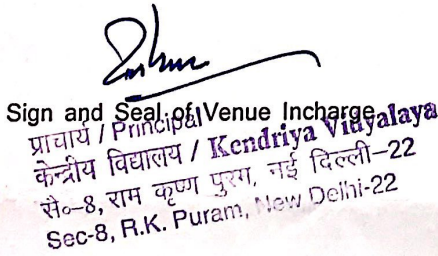 Sign and Seal of Venue Incharge
प्राचार्य / Principal
केन्द्रीय विद्यालय / Kendriya Vidyalaya
सै०–8, राम कृष्ण पुरम, नई दिल्ली–22
Sec-8, R.K. Puram, New Delhi-22